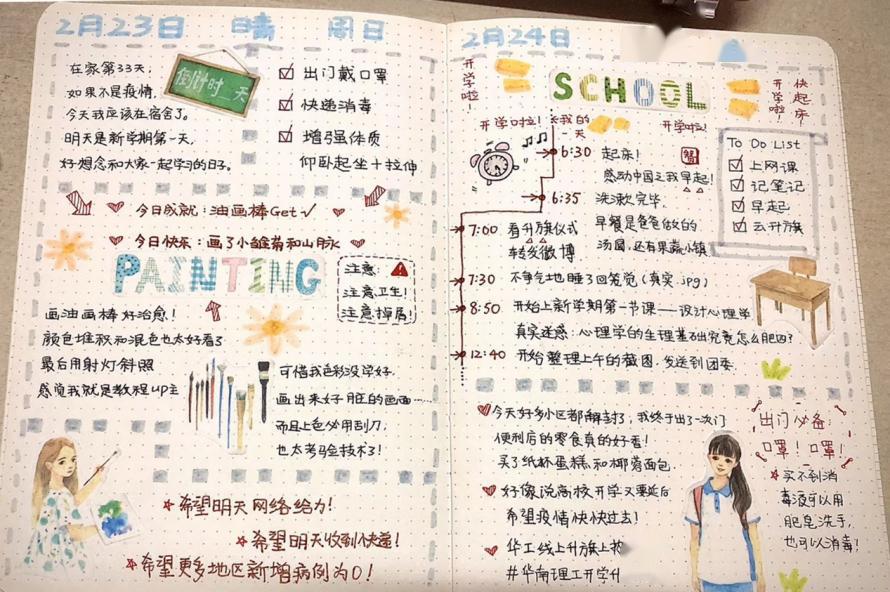 2月23日 晴 周日
在家第33天，
如果不是疫情，
今天我应该在宿舍了。
明天是新学期第一天，
好想念和大家一起学习的日子。
倒计时 天
出门戴口罩
快递消毒
增强体质
仰卧起坐+拉伸
今日成就：油画棒Get√
今日快乐：画了小雏菊和山脉
PAINTING
注意：
注意卫生！
注意掉屑！
画油画棒好治愈！
颜色堆积和混色也太好看了
最后用射灯斜照
感觉我就是教程up主
可惜我色彩没学好，
画出来好脏的画面……
而且上色必用刮刀，
也太考验技术了！
希望明天网络给力！
希望明天收到快递！
希望更多地区新增病例为0！
2月24日
开学啦！
SCHOOL
开学啦！
快起床！
开学啦！
我的一天
开学啦！
6:30 起床！
感动中国之我早起！
6:35 洗漱完毕，
早餐是爸爸做的
汤圆，还有果蔬小镇
7:00 看升旗仪式
转发微博
7:30 不争气地睡了回笼觉（真实.jpg）
8:50 开始上新学期第一节课——设计心理学
真实迷惑：心理学的生理基础究竟怎么肥四？
12:40 开始整理上午的截图，发送到团委
To Do List
上网课
记笔记
早起
云升旗
今天好多小区都解封了，我终于出了一次门
便利店的零食真的好看！
买了纸杯蛋糕和椰蓉面包
好像说高校开学又要延后
希望疫情快快过去！
华工线上升旗上
#华南理工开学
出门必备：
口罩！口罩！
买不到消
毒液可以用
肥皂洗手，
也可以消毒！